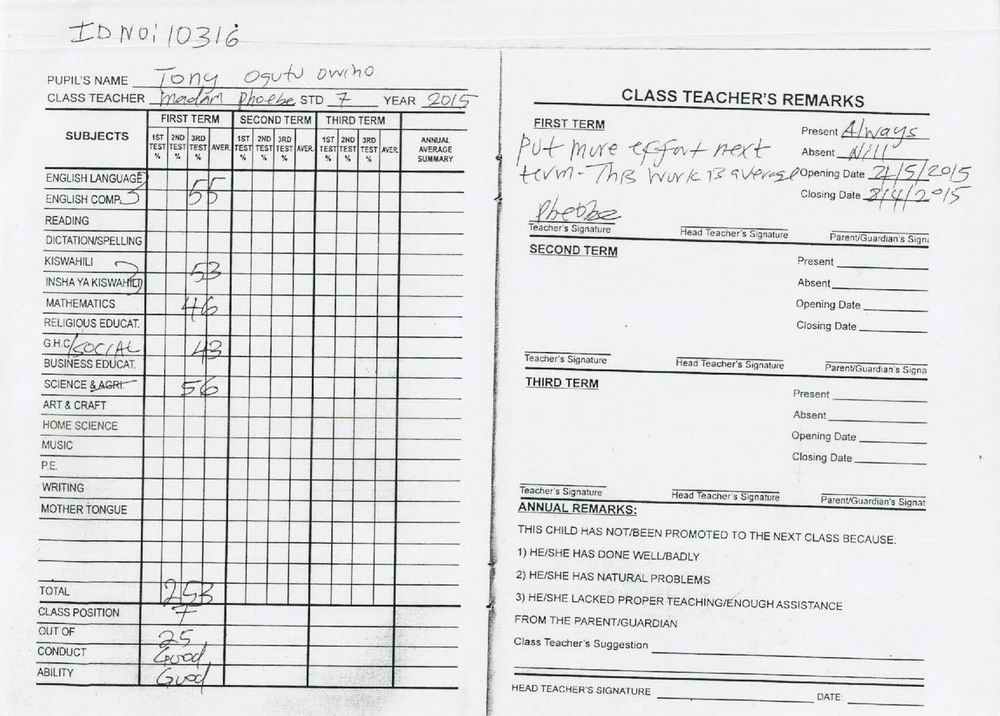 ID NO: 10316
PUPIL'S NAME Tony Ogutu Owino
CLASS TEACHER Madam Phoebe STD 7 YEAR 2015
SUBJECTS FIRST TERM SECOND TERM THIRD TERM ANNUAL AVERAGE SUMMARY
1ST TEST % 2ND TEST % 3RD TEST % AVER. 1ST TEST % 2ND TEST % 3RD TEST % AVER. 1ST TEST % 2ND TEST % 3RD TEST % AVER.
ENGLISH LANGUAGE
ENGLISH COMP. 55
READING
DICTATION/SPELLING
KISWAHILI
INSHA YA KISWAHILI 53
MATHEMATICS 46
RELIGIOUS EDUCAT.
G.H.C/SOCIAL 43
BUSINESS EDUCAT.
SCIENCE & AGRI 56
ART & CRAFT
HOME SCIENCE
MUSIC
P.E.
WRITING
MOTHER TONGUE
TOTAL 253
CLASS POSITION 7
OUT OF 25
CONDUCT Good
ABILITY Good
CLASS TEACHER'S REMARKS
FIRST TERM
Present Always
Put more effort next
Absent Nill
term - This work is average
Opening Date 4/5/2015
Closing Date 8/4/2015
Phoebe
Teacher's Signature Head Teacher's Signature Parent/Guardian's Signa
SECOND TERM
Present
Absent
Opening Date
Closing Date
Teacher's Signature Head Teacher's Signature Parent/Guardian's Signa
THIRD TERM
Present
Absent
Opening Date
Closing Date
Teacher's Signature Head Teacher's Signature Parent/Guardian's Signat
ANNUAL REMARKS:
THIS CHILD HAS NOT/BEEN PROMOTED TO THE NEXT CLASS BECAUSE:
1) HE/SHE HAS DONE WELL/BADLY
2) HE/SHE HAS NATURAL PROBLEMS
3) HE/SHE LACKED PROPER TEACHING/ENOUGH ASSISTANCE
FROM THE PARENT/GUARDIAN
Class Teacher's Suggestion
HEAD TEACHER'S SIGNATURE DATE: